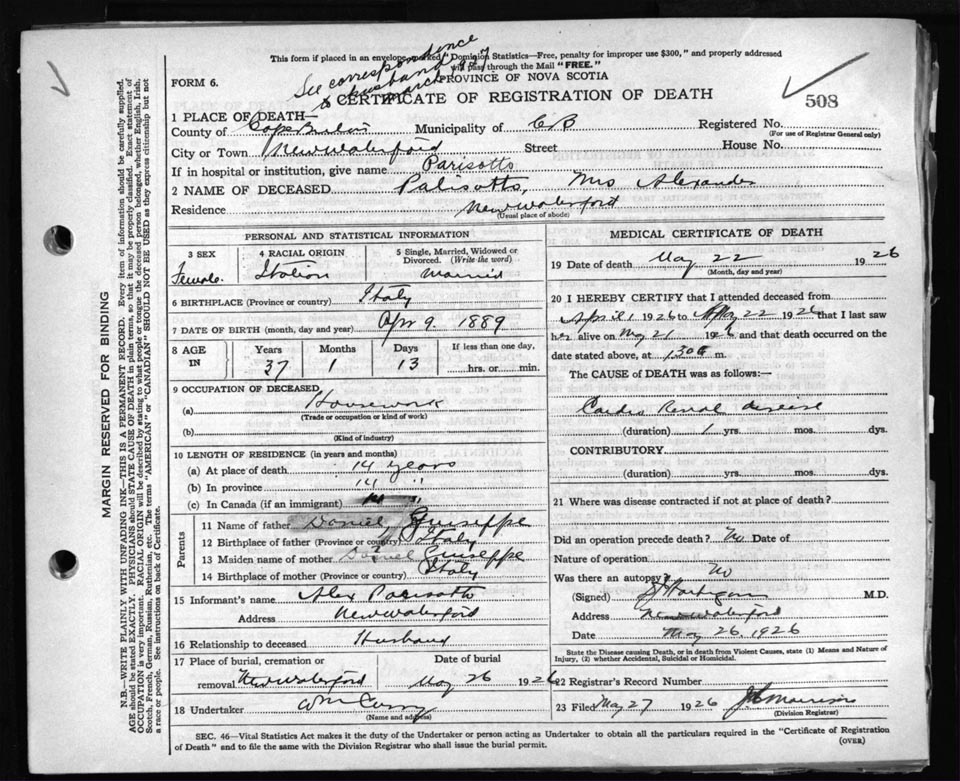 This form if placed in an envelope marked "Dominion Statistics—Free, penalty for improper use $300," and properly addressed
will pass through the Mail "FREE."
See correspondence
FORM 6.
PROVINCE OF NOVA SCOTIA
CERTIFICATE OF REGISTRATION OF DEATH
508
1 PLACE OF DEATH—
County of Cape Breton Municipality of CB Registered No.
(For use of Registrar General only)
City or Town New Waterford Street House No.
If in hospital or institution, give name Parisotto
2 NAME OF DECEASED Palisotto, Mrs Alexander
Residence New Waterford
(Usual place of abode)
PERSONAL AND STATISTICAL INFORMATION
3 SEX 4 RACIAL ORIGIN 5 Single, Married, Widowed or Divorced. (Write the word)
Female Italian Married
6 BIRTHPLACE (Province or country) Italy
7 DATE OF BIRTH (month, day and year) Apr 9. 1889
8 AGE IN Years Months Days If less than one day,
37 1 13 hrs. or min.
9 OCCUPATION OF DECEASED
(a) Housework
(Trade or occupation or kind of work)
(b)
(Kind of industry)
10 LENGTH OF RESIDENCE (in years and months)
(a) At place of death 14 years
(b) In province 14 "
(c) In Canada (if an immigrant) "
Parents
11 Name of father Daniel Guiseppe
12 Birthplace of father (Province or country) Italy
13 Maiden name of mother Daniel Guiseppe
14 Birthplace of mother (Province or country) Italy
15 Informant's name Alex Parisotto
Address New Waterford
16 Relationship to deceased Husband
17 Place of burial, cremation or removal New Waterford
Date of burial May 26 1926
18 Undertaker Wm Curry
(Name and address)
MEDICAL CERTIFICATE OF DEATH
19 Date of death May 22 1926
(Month, day and year)
20 I HEREBY CERTIFY that I attended deceased from
April 1 1926 to May 22 1926 that I last saw
her alive on May 21 1926 and that death occurred on
date stated above, at 1.30 a m.
The CAUSE of DEATH was as follows:—
Cardio Renal disease
(duration) 1 yrs. mos. dys.
CONTRIBUTORY
(duration) yrs. mos. dys.
21 Where was disease contracted if not at place of death?
Did an operation precede death? No Date of
Nature of operation
Was there an autopsy? No
(Signed) M.D.
Address New Waterford
Date May 26. 1926
State the Disease causing Death, or in death from Violent Causes, state (1) Means and Nature of
Injury, (2) whether Accidental, Suicidal or Homicidal.
22 Registrar's Record Number
23 Filed May 27 1926
(Division Registrar)
SEC. 46—Vital Statistics Act makes it the duty of the Undertaker or person acting as Undertaker to obtain all the particulars required in the "Certificate of Registration
of Death" and to file the same with the Division Registrar who shall issue the burial permit.
(OVER)
MARGIN RESERVED FOR BINDING
N.B.—WRITE PLAINLY WITH UNFADING INK—THIS IS A PERMANENT RECORD. Every item of information should be carefully supplied.
AGE should be stated EXACTLY. PHYSICIANS should STATE CAUSE OF DEATH in plain terms, so that it may be properly classified. Exact statement of
OCCUPATION is very important. RACIAL ORIGIN will be described by stating to what people or tongue the deceased person belonged, whether English, Irish,
Scotch, French, German, Russian, Ruthenian, etc. The terms "AMERICAN" or "CANADIAN" SHOULD NOT BE USED as they express citizenship but not
a race or people. See instructions on back of Certificate.